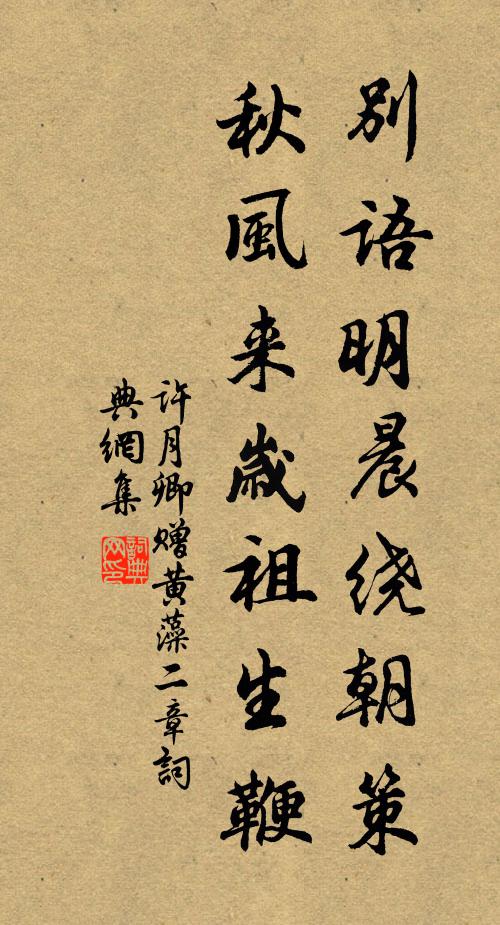 别语明晨绕朝策
秋風来歲祖生鞭
许月卿赠黄藻二章詞
典網集
詞典网印